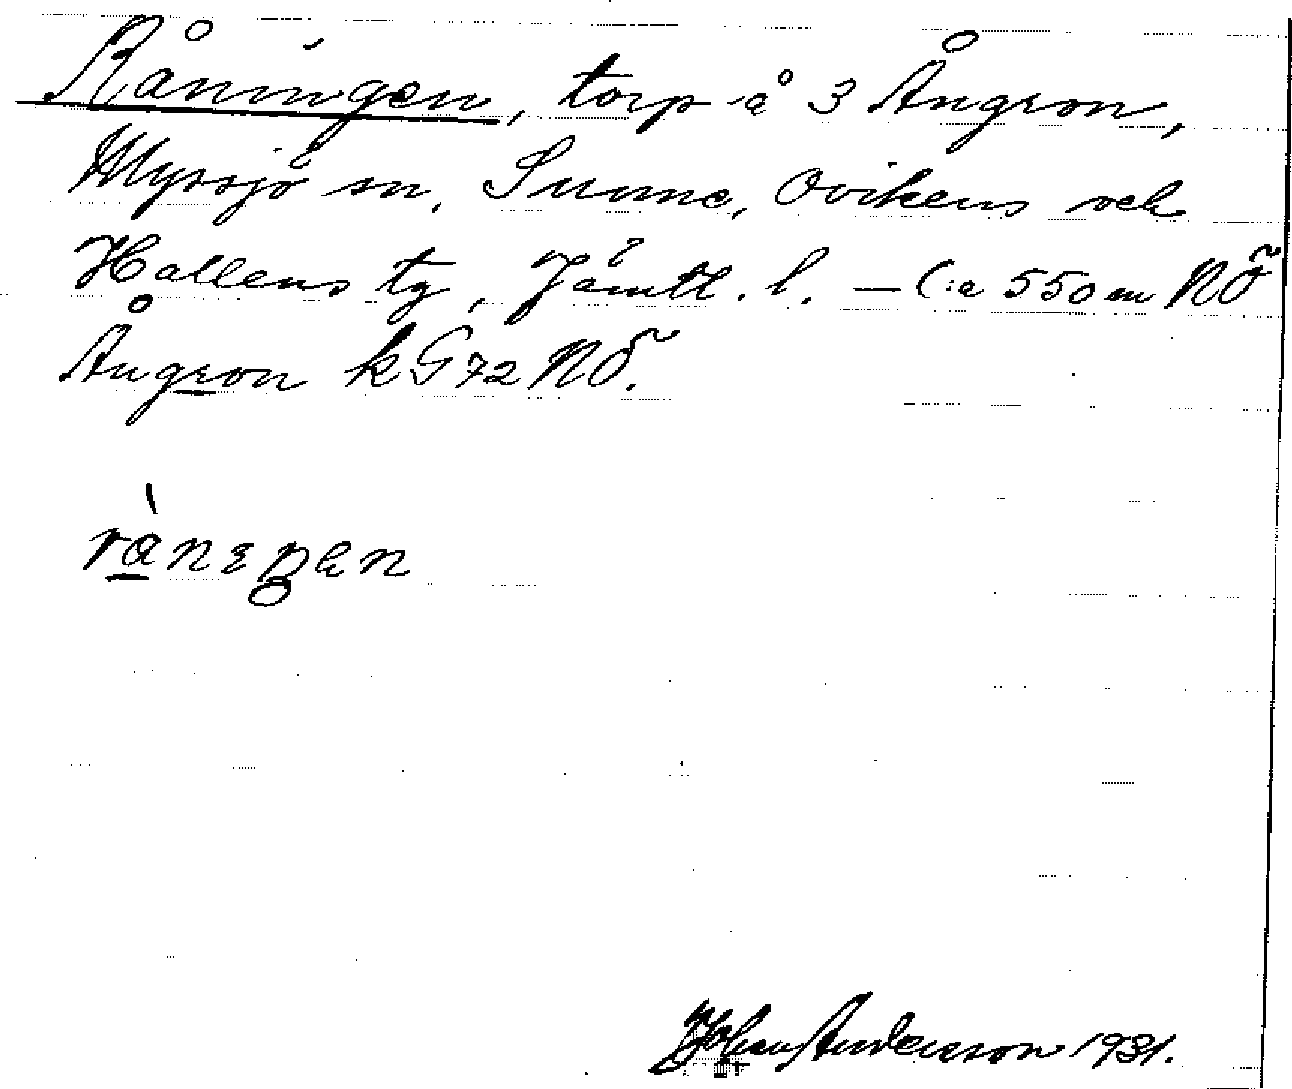 Råningen, torp å 3 Ångron,
Myssjö sn, Sunne, Ovikens och
Hallens tg, Jämtl. l. — C:a 550 m NÖ
Ångron kG72NÖ.
rånꞫŋen
Johan Andersson 1931.